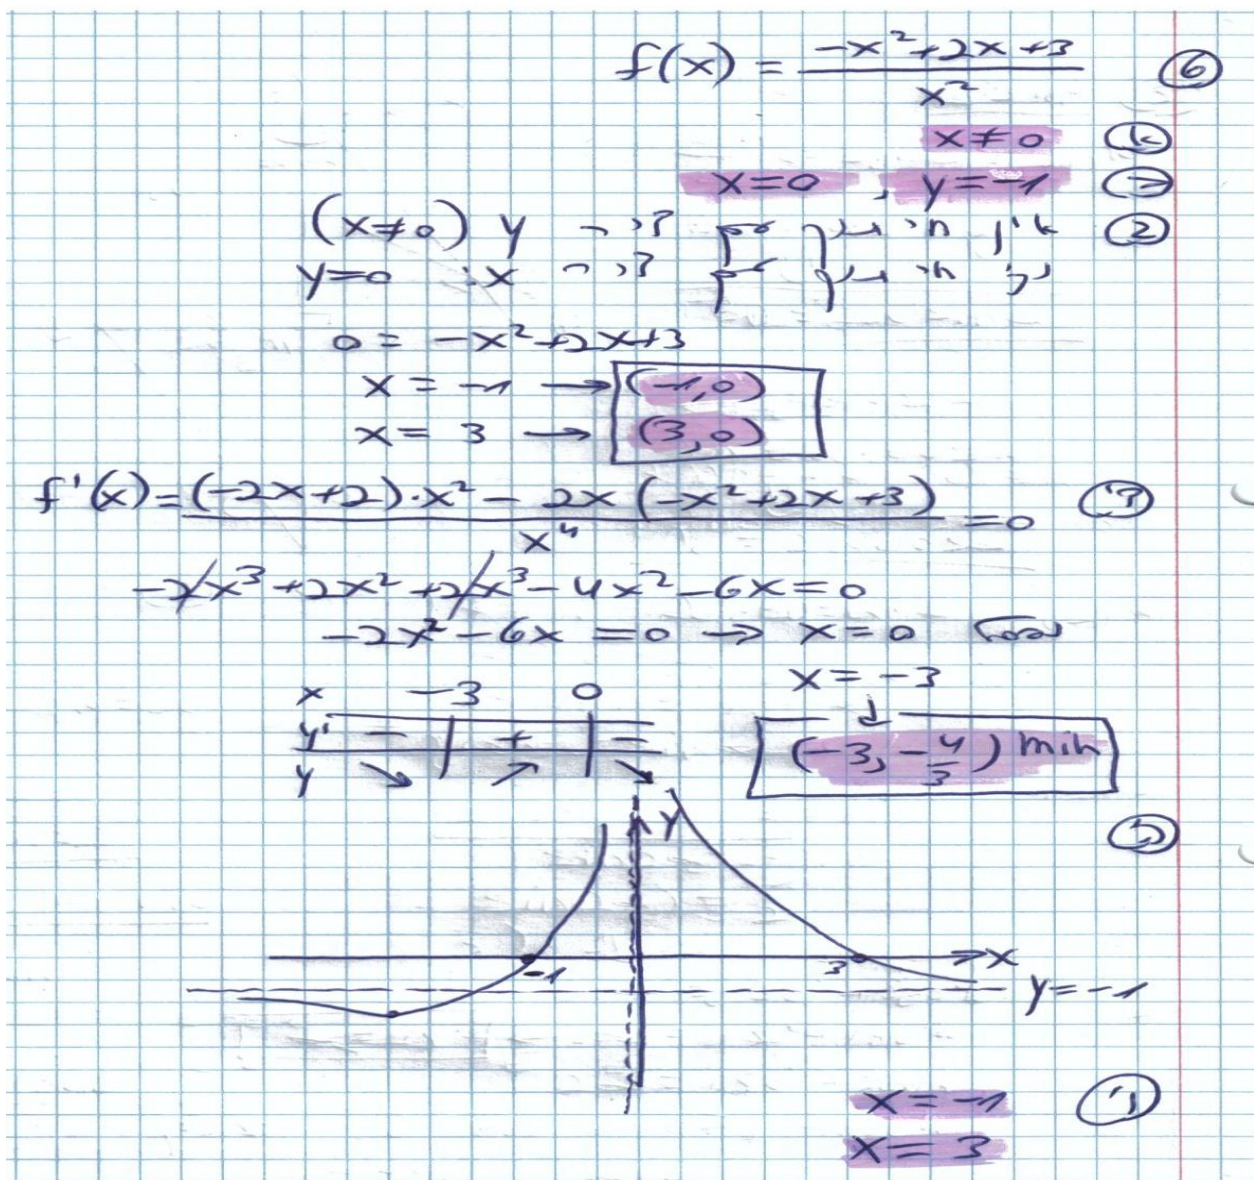 ⑥ f(x) = (-x²+2x+3)/x²
א x ≠ 0
ב x=0 , y=-1
ג אין חיתוך עם ציר y (x≠0)
חיתוך עם ציר x: y=0
0 = -x²+2x+3
x = -1 → (-1,0)
x = 3 → (3,0)
ד f'(x) = ((-2x+2)·x² - 2x(-x²+2x+3))/x⁴ = 0
-2x³+2x²+2x³-4x²-6x=0
-2x²-6x=0 → x=0 נפסל
x = -3
x -3 0
y' - + -
y ↘ ↗ ↘
(-3, -4/3) min
ה
y
-1 3 x
y=-1
ו x=-1
x=3